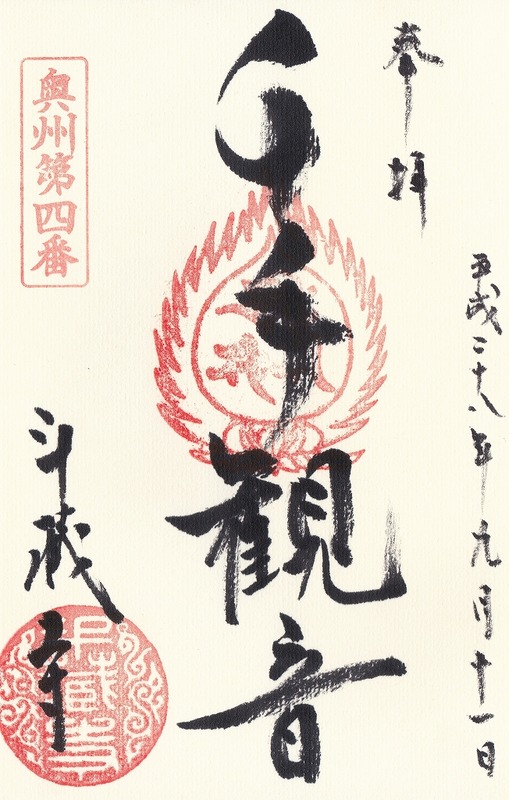 奉拝
平成二十八年九月十一日
千手観音
奥州第四番
斗蔵寺
斗蔵寺